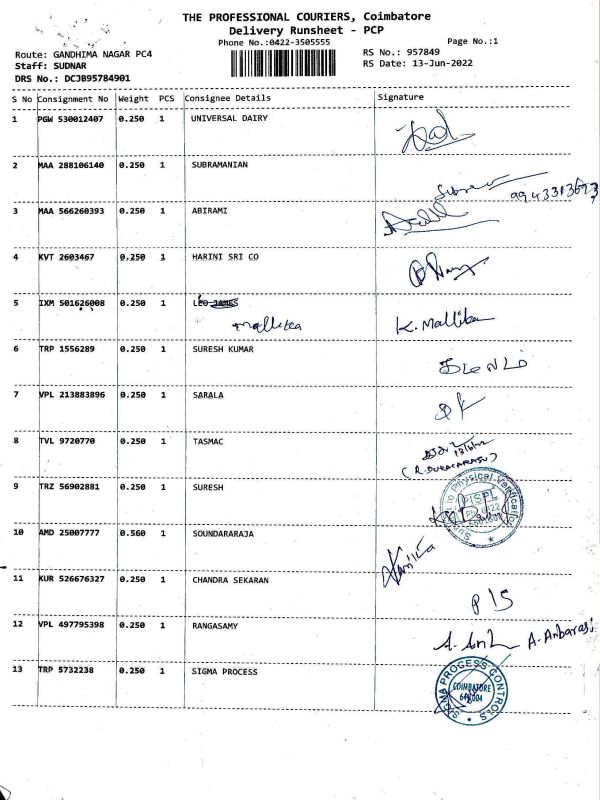 THE PROFESSIONAL COURIERS, Coimbatore
Delivery Runsheet - PCP
Phone No.:0422-3505555
Page No.:1
Route: GANDHIMA NAGAR PC4
RS No.: 957849
Staff: SUDNAR
RS Date: 13-Jun-2022
DRS No.: DCJB95784901
S No Consignment No Weight PCS Consignee Details Signature
1 PGW 530012407 0.250 1 UNIVERSAL DAIRY
2 MAA 288106140 0.250 1 SUBRAMANIAN
9943313673
3 MAA 566260393 0.250 1 ABIRAMI
4 KVT 2603467 0.250 1 HARINI SRI CO
5 IXM 501626008 0.250 1 LEO JAMES
Mallika K. Mallika
6 TRP 1556289 0.250 1 SURESH KUMAR
7 VPL 213883896 0.250 1 SARALA
8 TVL 9720770 0.250 1 TASMAC
13/6/22
9 TRZ 56902881 0.250 1 SURESH
Physical
10 AMD 25007777 0.560 1 SOUNDARARAJA
11 KUR 526676327 0.250 1 CHANDRA SEKARAN
12 VPL 497795398 0.250 1 RANGASAMY
A. Anbarasi
13 TRP 5732238 0.250 1 SIGMA PROCESS
SIGMA PROCESS CONTROLS
COIMBATORE